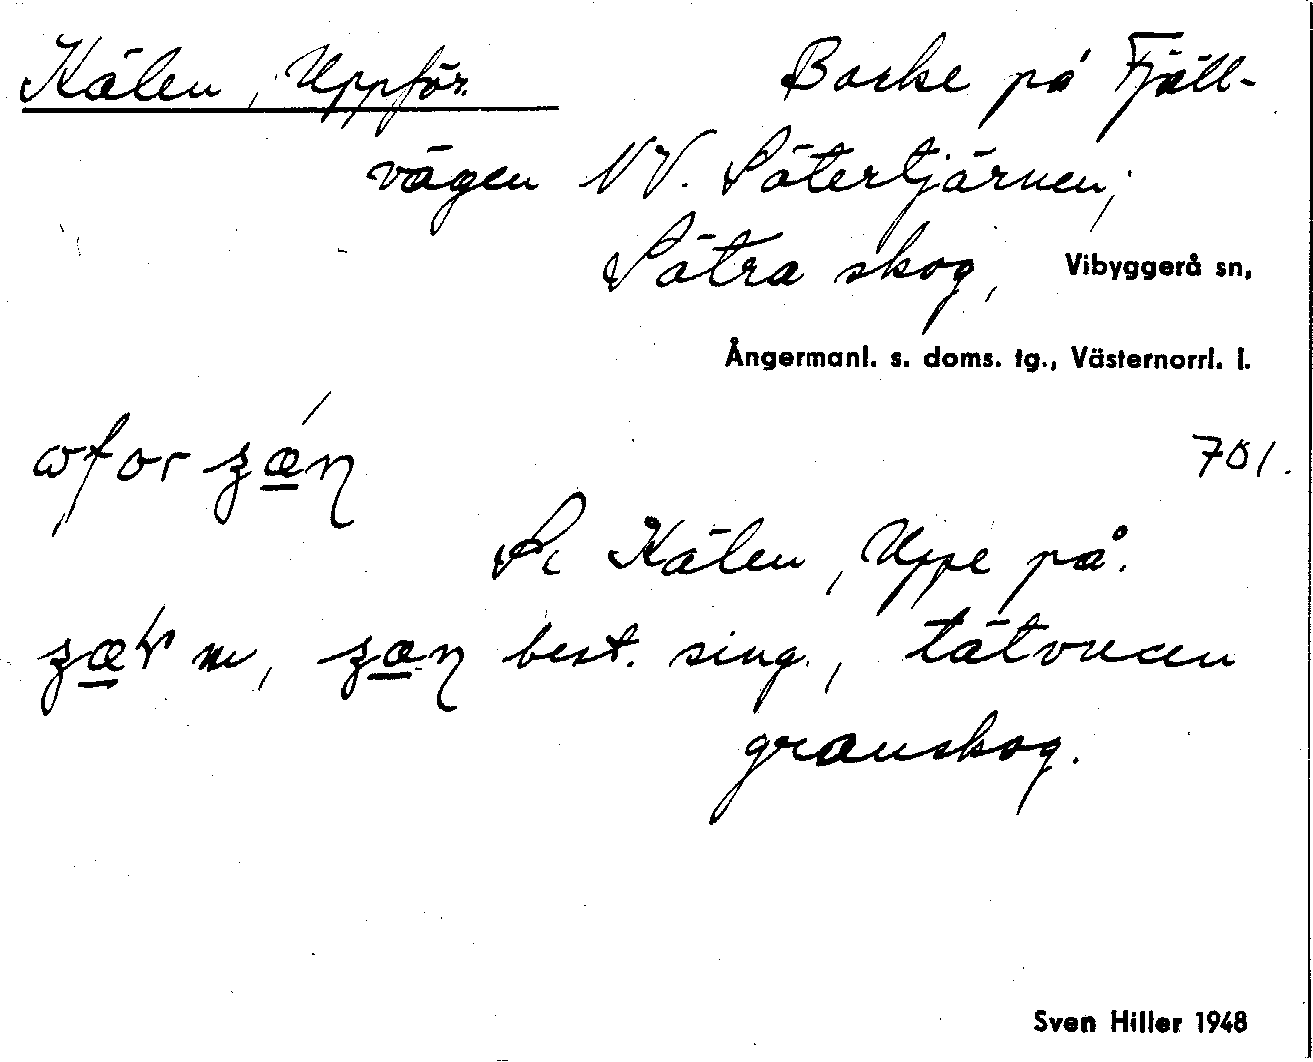 Kälen, Uppför. Backe på Fjäll-
vägen NV. Sätertjärnen,
Sätra skog, Vibyggerå sn,
Ångermanl. s. doms. tg., Västernorrl. l.
701.
Kälen, Uppe på.
m, best. sing., tätvuxen
granskog.
Sven Hiller 1948